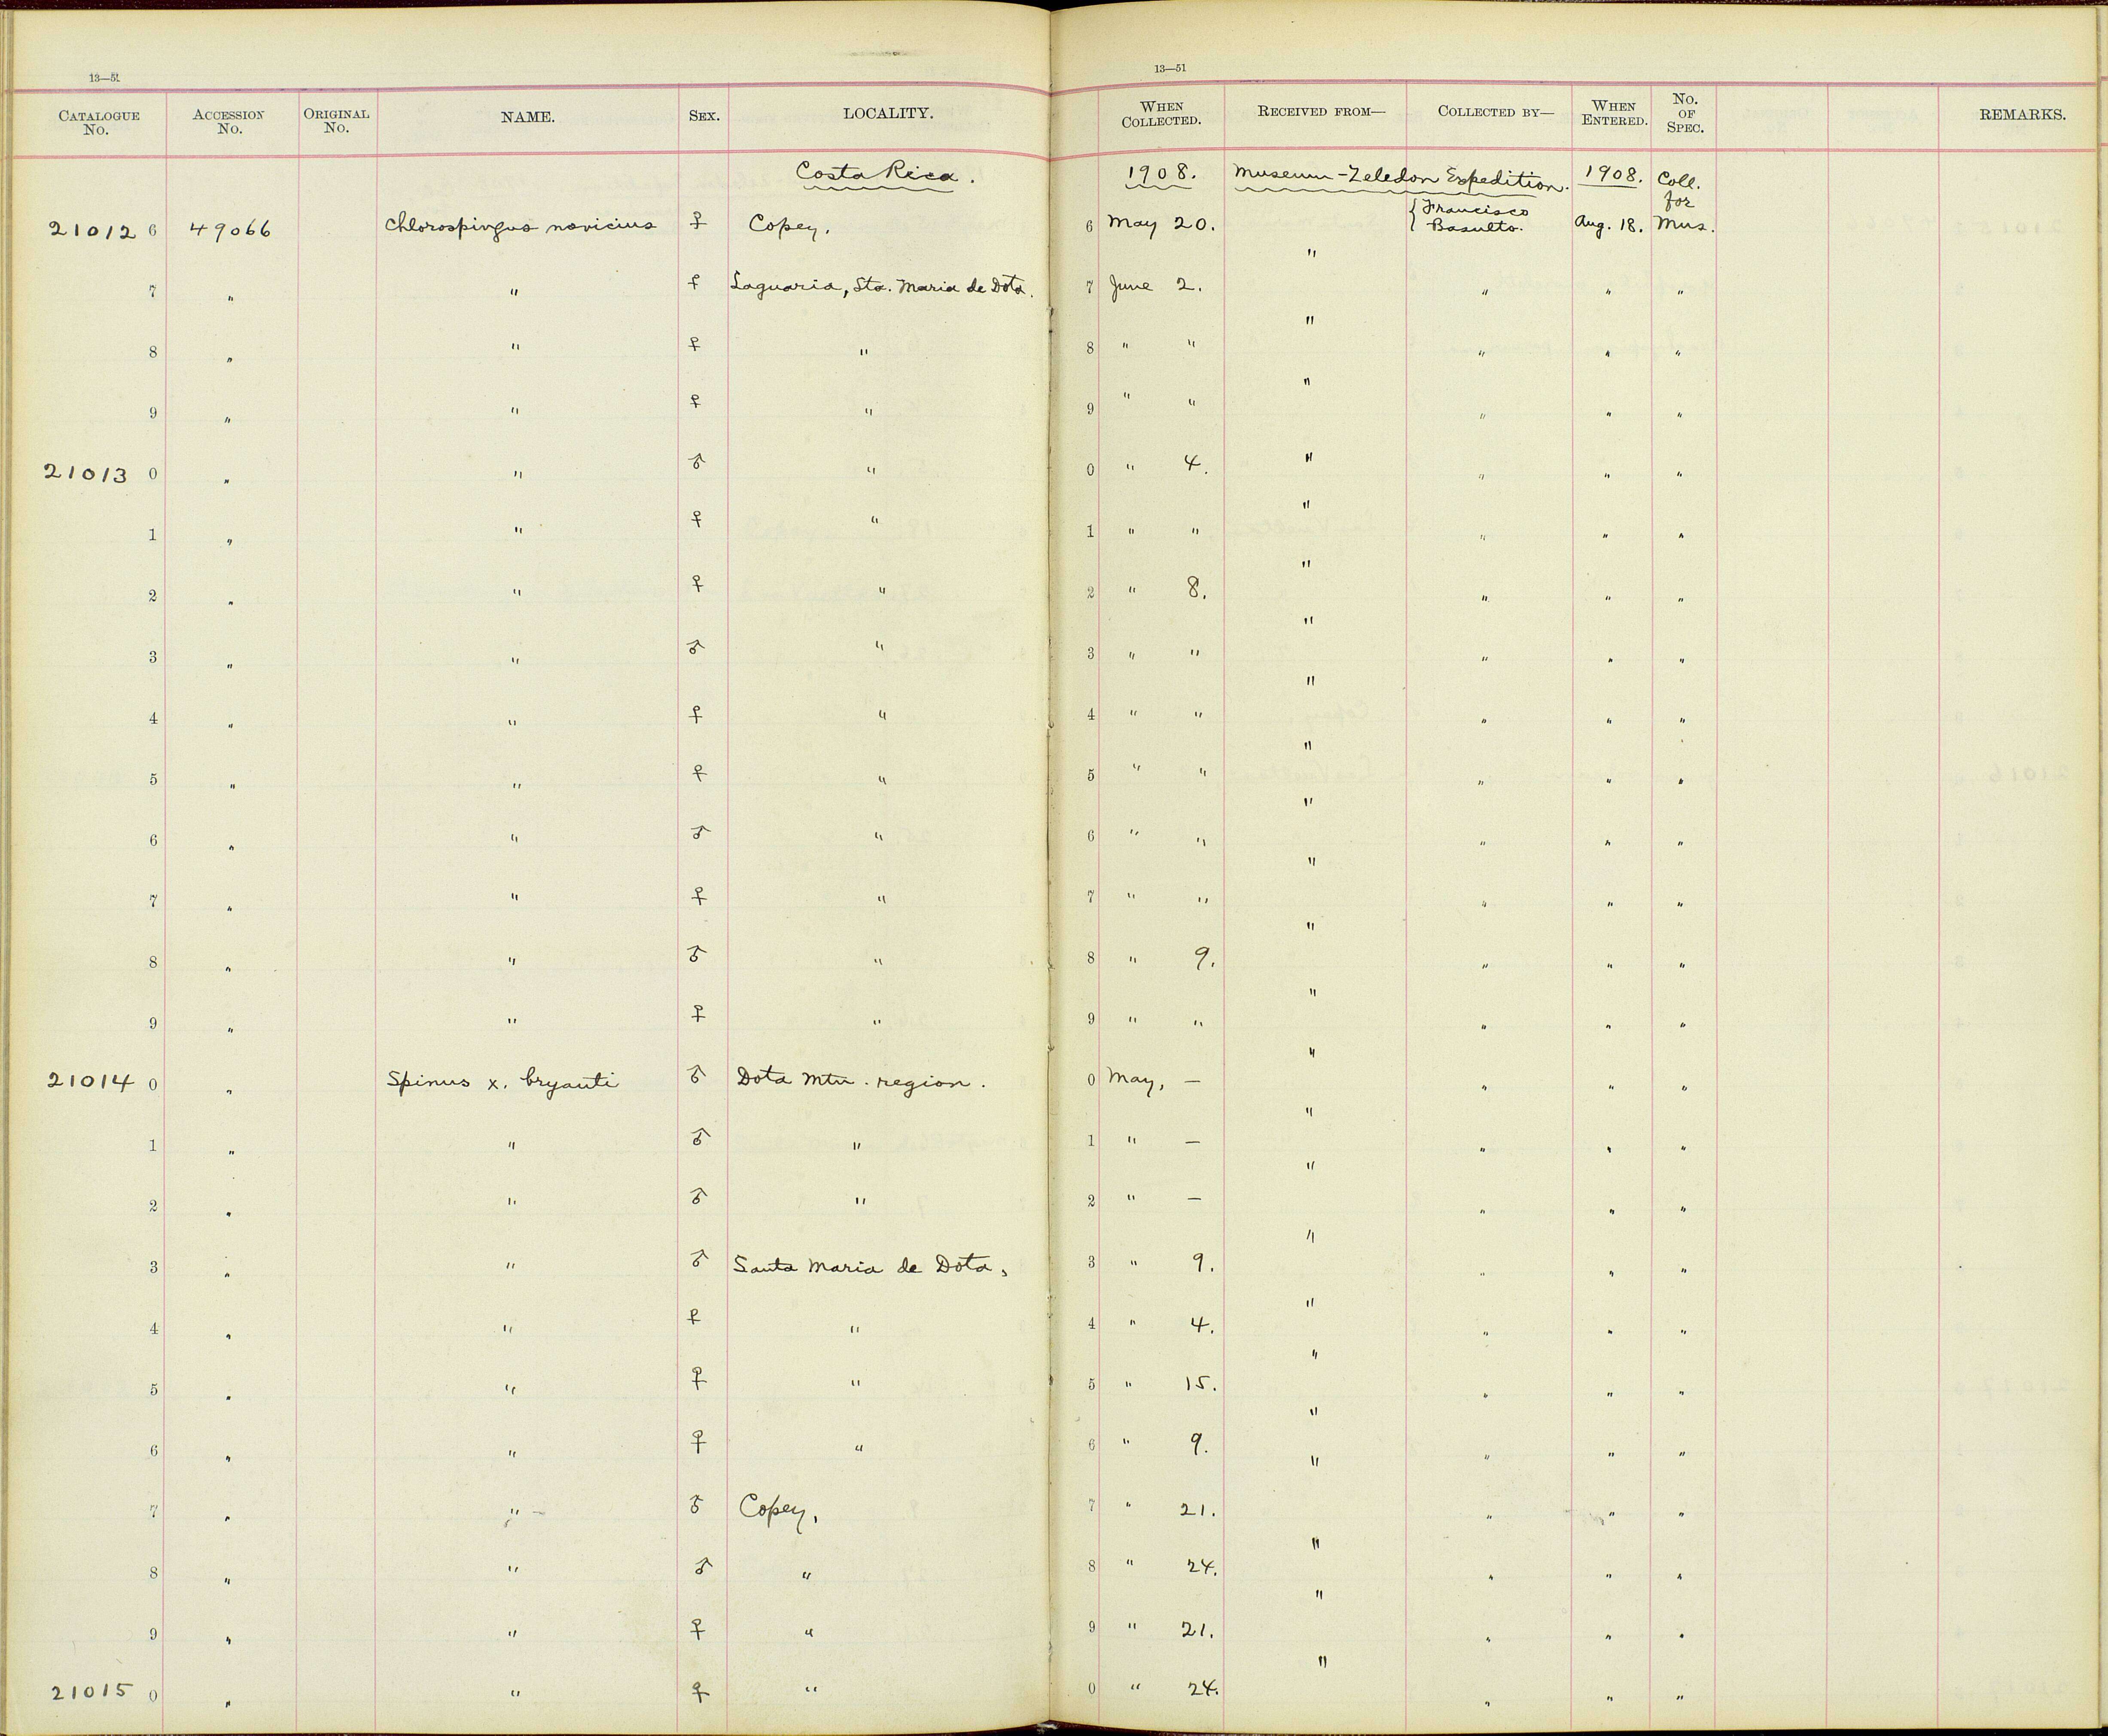 13—51
13—51
CATALOGUE No. ACCESSION No. ORIGINAL No. NAME. SEX. LOCALITY. WHEN COLLECTED. RECEIVED FROM— COLLECTED BY— WHEN ENTERED. No. OF SPEC. REMARKS.
Costa Rica. 1908. Museum-Zeledon Expedition. 1908. Coll. for Mus.
21012 6 49066 Chlorospingus novicius ♀ Copey. 6 May 20. " { Francisco Basulto. Aug. 18.
7 " " ♀ Laguaria, Sta. Maria de Dota. 7 June 2. " " " "
8 " " ♀ " 8 " " " " " "
9 " " ♀ " 9 " " " " " "
21013 0 " " ♂ " 0 " 4. " " " "
1 " " ♀ " 1 " " " " " "
2 " " ♀ " 2 " 8. " " " "
3 " " ♂ " 3 " " " " " "
4 " " ♀ " 4 " " " " " "
5 " " ♀ " 5 " " " " " "
6 " " ♂ " 6 " " " " " "
7 " " ♀ " 7 " " " " " "
8 " " ♂ " 8 " 9. " " " "
9 " " ♀ " 9 " " " " " "
21014 0 " Spinus x. bryanti ♂ Dota Mtn. region. 0 May, — " " " "
1 " " ♂ " 1 " — " " " "
2 " " ♂ " 2 " — " " " "
3 " " ♂ Santa Maria de Dota, 3 " 9. " " " "
4 " " ♀ " 4 " 4. " " " "
5 " " ♀ " 5 " 15. " " " "
6 " " ♀ " 6 " 9. " " " "
7 " " ♂ Copey, 7 " 21. " " " "
8 " " ♂ " 8 " 24. " " " "
9 " " ♀ " 9 " 21. " " " "
21015 0 " " ♀ " 0 " 24. " " "